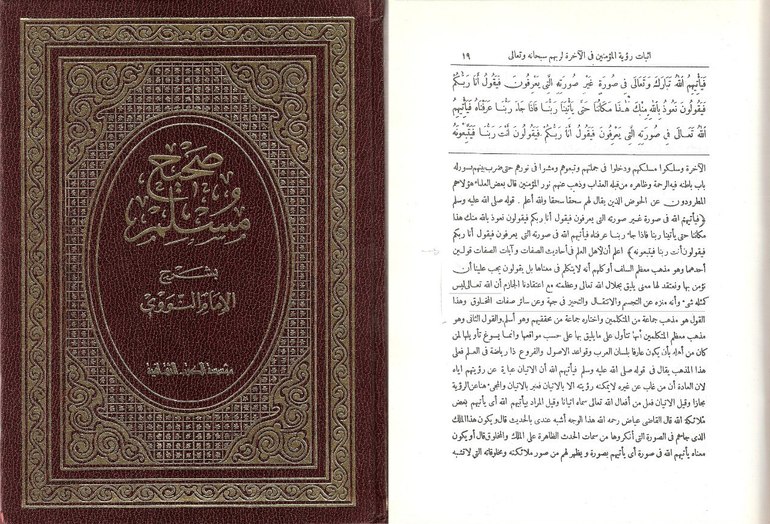 صحيح
مسلم
بشرح
الإمام النووي
مؤسسة الكتب الثقافية
اثبات رؤية المؤمنين فى الآخرة لربهم سبحانه وتعالى ١٩
فَيَأْتِيهِمُ اللهُ تَبَارَكَ وَتَعَالَى فِى صُورَةٍ غَيْرِ صُورَتِهِ الَّتِى يَعْرِفُونَ فَيَقُولُ أَنَا رَبُّكُمْ
فَيَقُولُونَ نَعُوذُ بِاللهِ مِنْكَ هٰذَا مَكَانُنَا حَتَّى يَأْتِيَنَا رَبُّنَا فَاذَا جَاءَ رَبُّنَا عَرَفْنَاهُ فَيَأْتِيهِمُ
اللهُ تَعَالَى فِى صُورَتِهِ الَّتِى يَعْرِفُونَ فَيَقُولُ أَنَا رَبُّكُمْ فَيَقُولُونَ أَنْتَ رَبُّنَا فَيَتَّبِعُونَهُ
الآخرة وسلكوا مسلكهم ودخلوا فى جملتهم وتبعوهم ومشوا فى نورهم حتى ضرب بينهم بسور له
باب باطنه فيه الرحمة وظاهره من قبله العذاب وذهب عنهم نور المؤمنين قال بعض العلماء هؤلاء هم
المطرودون عن الحوض الذين يقال لهم سحقا سحقا والله أعلم . قوله صلى الله عليه وسلم
﴿فيأتيهم الله فى صورة غير صورته التى يعرفون فيقول أنا ربكم فيقولون نعوذ بالله منك هذا
مكاننا حتى يأتينا ربنا فاذا جاء ربنا عرفناه فيأتيهم الله فى صورته التى يعرفون فيقول أنا ربكم
فيقولون أنت ربنا فيتبعونه﴾ اعلم أن لأهل العلم فى أحاديث الصفات وآيات الصفات قولين
أحدهما وهو مذهب معظم السلف أو كلهم أنه لا يتكلم فى معناها بل يقولون يجب علينا أن
نؤمن بها ونعتقد لها معنى يليق بجلال الله تعالى وعظمته مع اعتقادنا الجازم أن الله تعالى ليس
كمثله شىء وأنه منزه عن التجسم والانتقال والتحيز فى جهة وعن سائر صفات المخلوق وهذا
القول هو مذهب جماعة من المتكلمين واختاره جماعة من محققيهم وهو أسلم والقول الثانى وهو
مذهب معظم المتكلمين أنها تتأول على ما يليق بها على حسب مواقعها وانما يسوغ تأويلها لمن
كان من أهله بأن يكون عارفا بلسان العرب وقواعد الاصول والفروع ذا رياضة فى العلم فعلى
هذا المذهب يقال فى قوله صلى الله عليه وسلم فيأتيهم الله أن الاتيان عبارة عن رؤيتهم اياه
لان العادة أن من غاب عن غيره لا يمكنه رؤيته الا بالاتيان فعبر بالاتيان والمجىء هنا عن الرؤية
مجازا وقيل الاتيان فعل من أفعال الله تعالى سماه اتيانا وقيل المراد بيأتيهم الله أى يأتيهم بعض
ملائكته الله قال القاضى عياض رحمه الله هذا الوجه أشبه عندى بالحديث قال ويكون هذا الملك
الذى جاءهم فى الصورة التى أنكروها من سمات الحدث الظاهرة على الملك والمخلوق قال أو يكون
معناه يأتيهم الله فى صورة أى يأتيهم بصورة ويظهر لهم من صور ملائكته ومخلوقاته التى لا تشبه